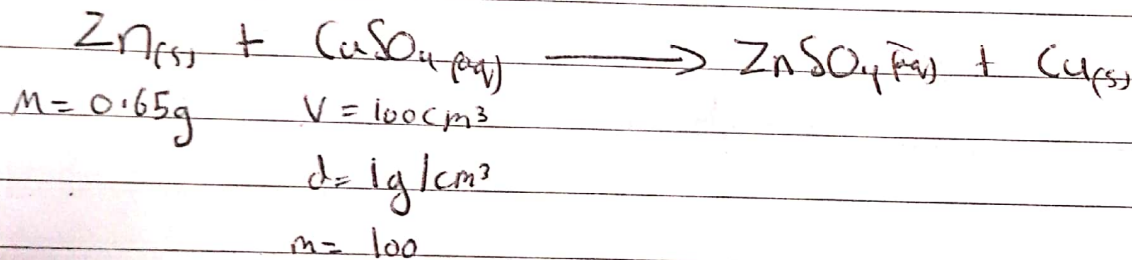 Zn(s) + CuSO4 (aq) ⟶ ZnSO4 (aq) + Cu(s)
M = 0.65g V = 100cm³
d= 1g/cm³
m= 100